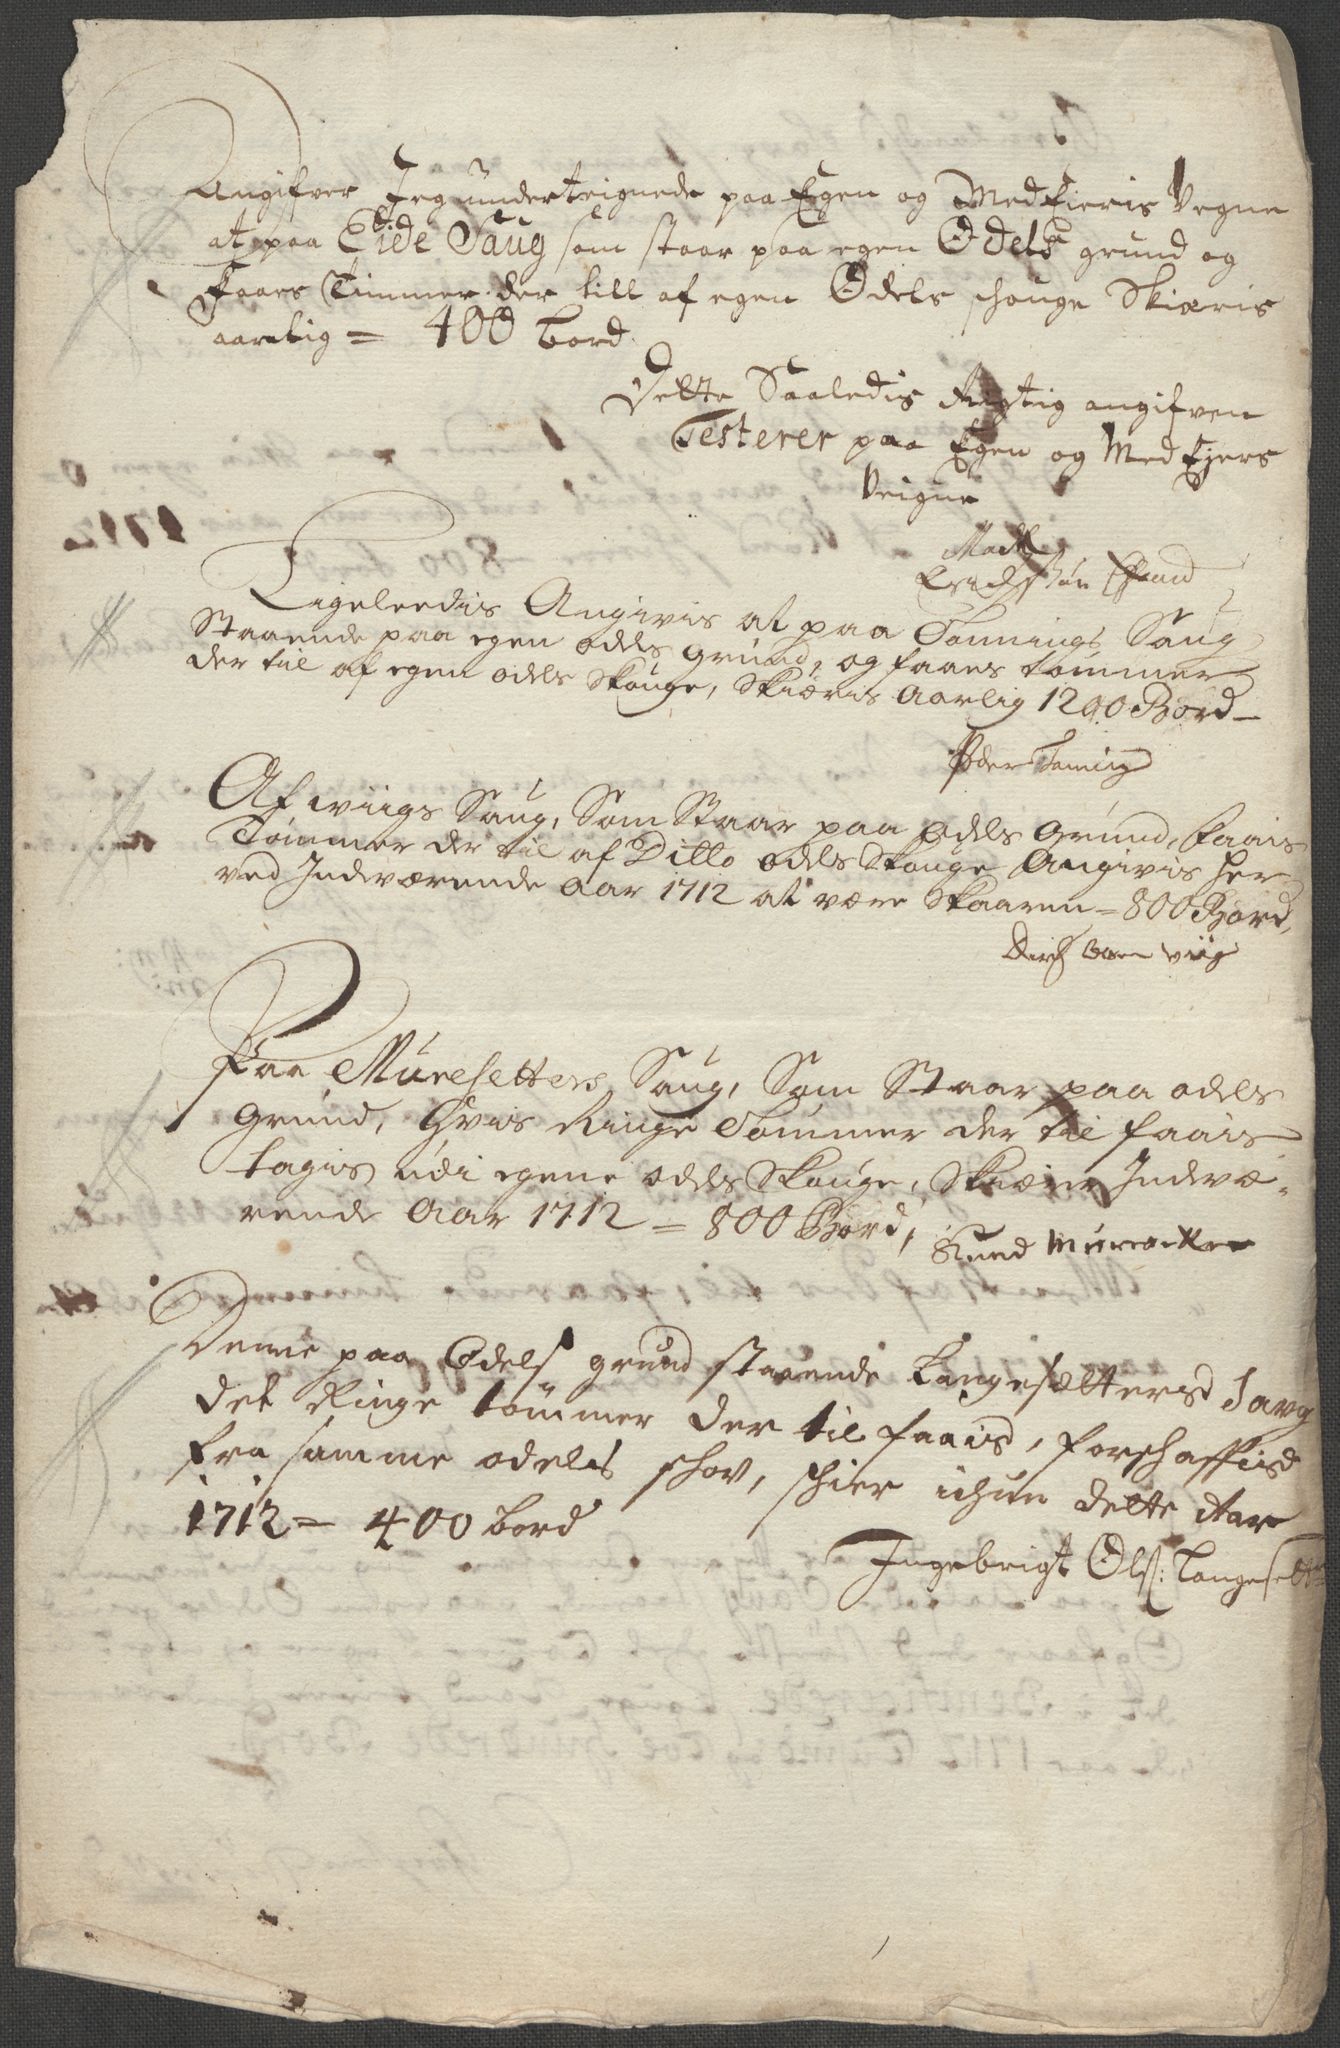 Angifver Jeg underteignede paa Egen og Medeieris Vegne
at paa Eide Saug som staar paa egen Odels grund og
faaes Timmer der till af egen Odels schouge Skiæris
aarelig = 400 bord.
Dette Saaledis Rigtig angifven
Testerer paa Egen og Med Ejers
Veigne
Erichsøn
Ligeleedis Angivis at paa Tonnings Saug
Staaende paa egen odels grund, og faaes tømmer
der til af egen odels Skouge, Skiæris Aarlig 1200 Bord
Peder Toning
Af wiigs Saug, Som Staar paa odels Grund, faais
Tømmer der til af Ditto odels Skouge Angivis her
ved Indværende Aar 1712 at være Skaaren = 800 Bord,
viig
Paa Muresetters Saug, Som Staar paa odels
Grund, Hvis Ringe Tømmer der til faais
tagis udi egene odels Skouge, Skiæres Indvæ-
rende Aar 1712 = 800 Bord,
Knud Muresetter
Denne paa Odels grund staaende Langesætters Saug
det Ringe tømmer der til faais, forschaffis
fra samme odels schov, schier ichun dette Aar
1712 = 400 bord
Ingebrigt Ols: Langesetter